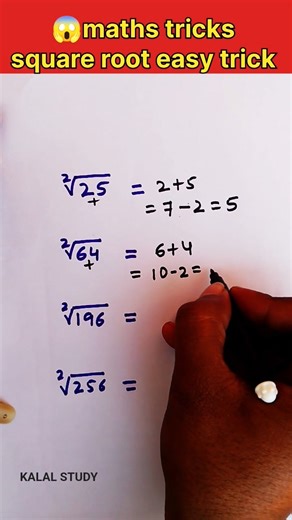 😱maths tricks
square root easy trick
²√25 = 2+5
+
= 7-2=5
²√64 = 6+4
+
= 10-2=
³√196 =
²√256 =
KALAL STUDY